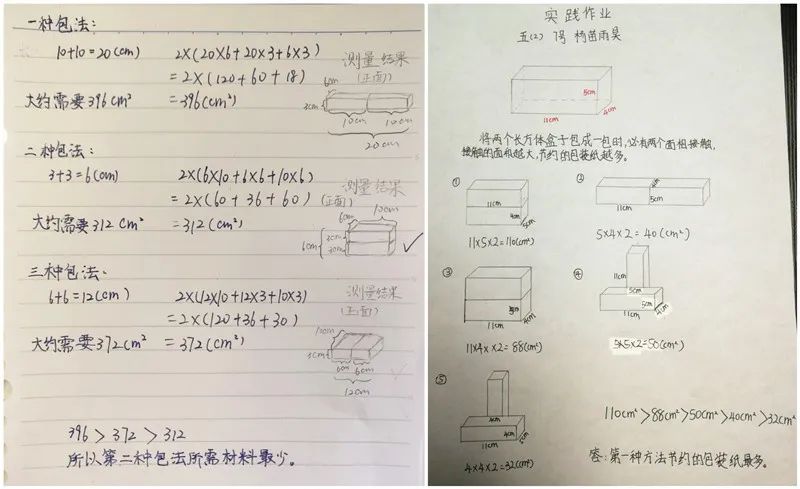 一种包法:
10+10=20(cm) 2×(20×6+20×3+6×3)
=2×(120+60+18)
大约需要396cm² =396(cm²)
测量结果
(正面)
6cm
3cm
10cm 10cm
20cm
二种包法:
3+3=6(cm) 2×(6×10+6×6+10×6)
=2×(60+36+60)
大约需要312cm² =312(cm²)
测量结果
(正面)
10cm
6cm
6cm
3cm
3cm
三种包法:
6+6=12(cm) 2×(12×10+12×3+10×3)
=2×(120+36+30)
大约需要372cm² =372(cm²)
测量结果
(正面)
10cm
3cm
6cm 6cm
12cm
396>372>312
所以第二种包法所需材料最少。
实践作业
五(2) 7号 杨苗雨昊
5cm
11cm 4cm
将两个长方体盒子包成一包时,必有两个面相接触,
接触的面积越大,节约的包装纸越多。
①
11cm
4cm
5cm
11×5×2=110(cm²)
②
4cm
11cm 5cm
5×4×2=40(cm²)
③
5cm
11cm 4cm
11×4××2=88(cm²)
④
11cm
5cm
5cm
11cm 4cm
5×5×2=50(cm²)
⑤
4cm
11cm
4×4×2=32(cm²)
110cm²>88cm²>50cm²>40cm²>32cm²
答:第一种方法节约的包装纸最多。